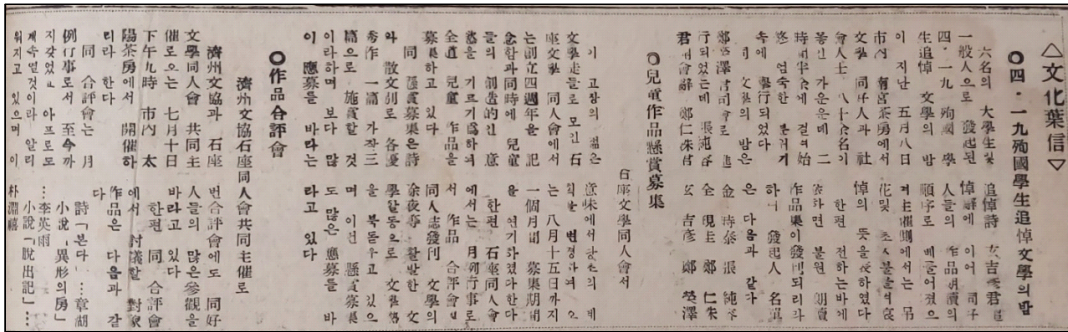 △文化葉信▽
◎四·一九殉國學生追悼文學의밤
六名의 大學生및
一般人으로 發起된
四·一九 殉國 學
生追悼 文學의 밤
이 지난 五月八日
市內 南宮茶房에서
文學 同好人과 社
會人士 八十余名이
가운데 二
時間半에 걸쳐始
終 엄숙한 분위기
속에 擧行되었다
文學의 밤은
鄭英澤君司會로 進
行되었는데 張純子
君開會辭 鄭仁洙君
追悼詩 玄吉彦君
悼辭에 이어 同好
人들의 作品朗讀의
順序로 베풀어졌으
며主催側에서는
花및 초불을켜哀
悼의 뜻을表하였다
한편 전하는바에
의하면 불원 朗讀
作品集이發刊되리라
하며 發起人 名單
은 다음과 같다
金時泰 張純子
金現主 鄭仁洙
玄吉彦 鄭英澤
◎兒童作品懸賞募集
石座文學同人會서
이 고장의 젊은
文學徒들로 모인 石
座文學 同人會에서
는創立四週年을 記
念함과同時에 兒童
들의 創造的인 意
慾을 기르기爲하여
全道 兒童 作品을
募集하고 있다
同 懸賞募集은詩
와 散文別로 各優
秀作 一篇 가作三
篇으로 施賞할 것
이라하며 보다 많
이 應募를 바라는
意味에서 當초의 計
획을 변경하여 오
는 八月十五日까지
一個月間 募集期間
을 연기하였다한다
한편 石座同人會
에서는 月例行事로
서 作品 合評會및
同人誌發刊 文學의
夜等 활발한 文
學활동으로 文藝열
을 북돋우고 있으
며 이번 懸賞募集
에도 많은 應募를 바
라고 있다
◎作品合評會
濟州文協石座同人會共同主催로
濟州文協과 石座
文學同人會 共同主
催로오는 七月十日
下午九時 市內 太
陽茶房에서 開催하
리라 한다
同 合評會는 月
例行事로서 至今까
지갖었으며 아프로도
계속될것이라 알리
워지고 있으며 이
번合評會에도 同好
人들의 많은參觀을
바라고 있다
한편 同 合評會
에서 討議할 對象
作品은 다음과 같
다
詩「본다」…章湖
小說「異形의房」
…李英雨
小說「脫出記」…
朴淵禧